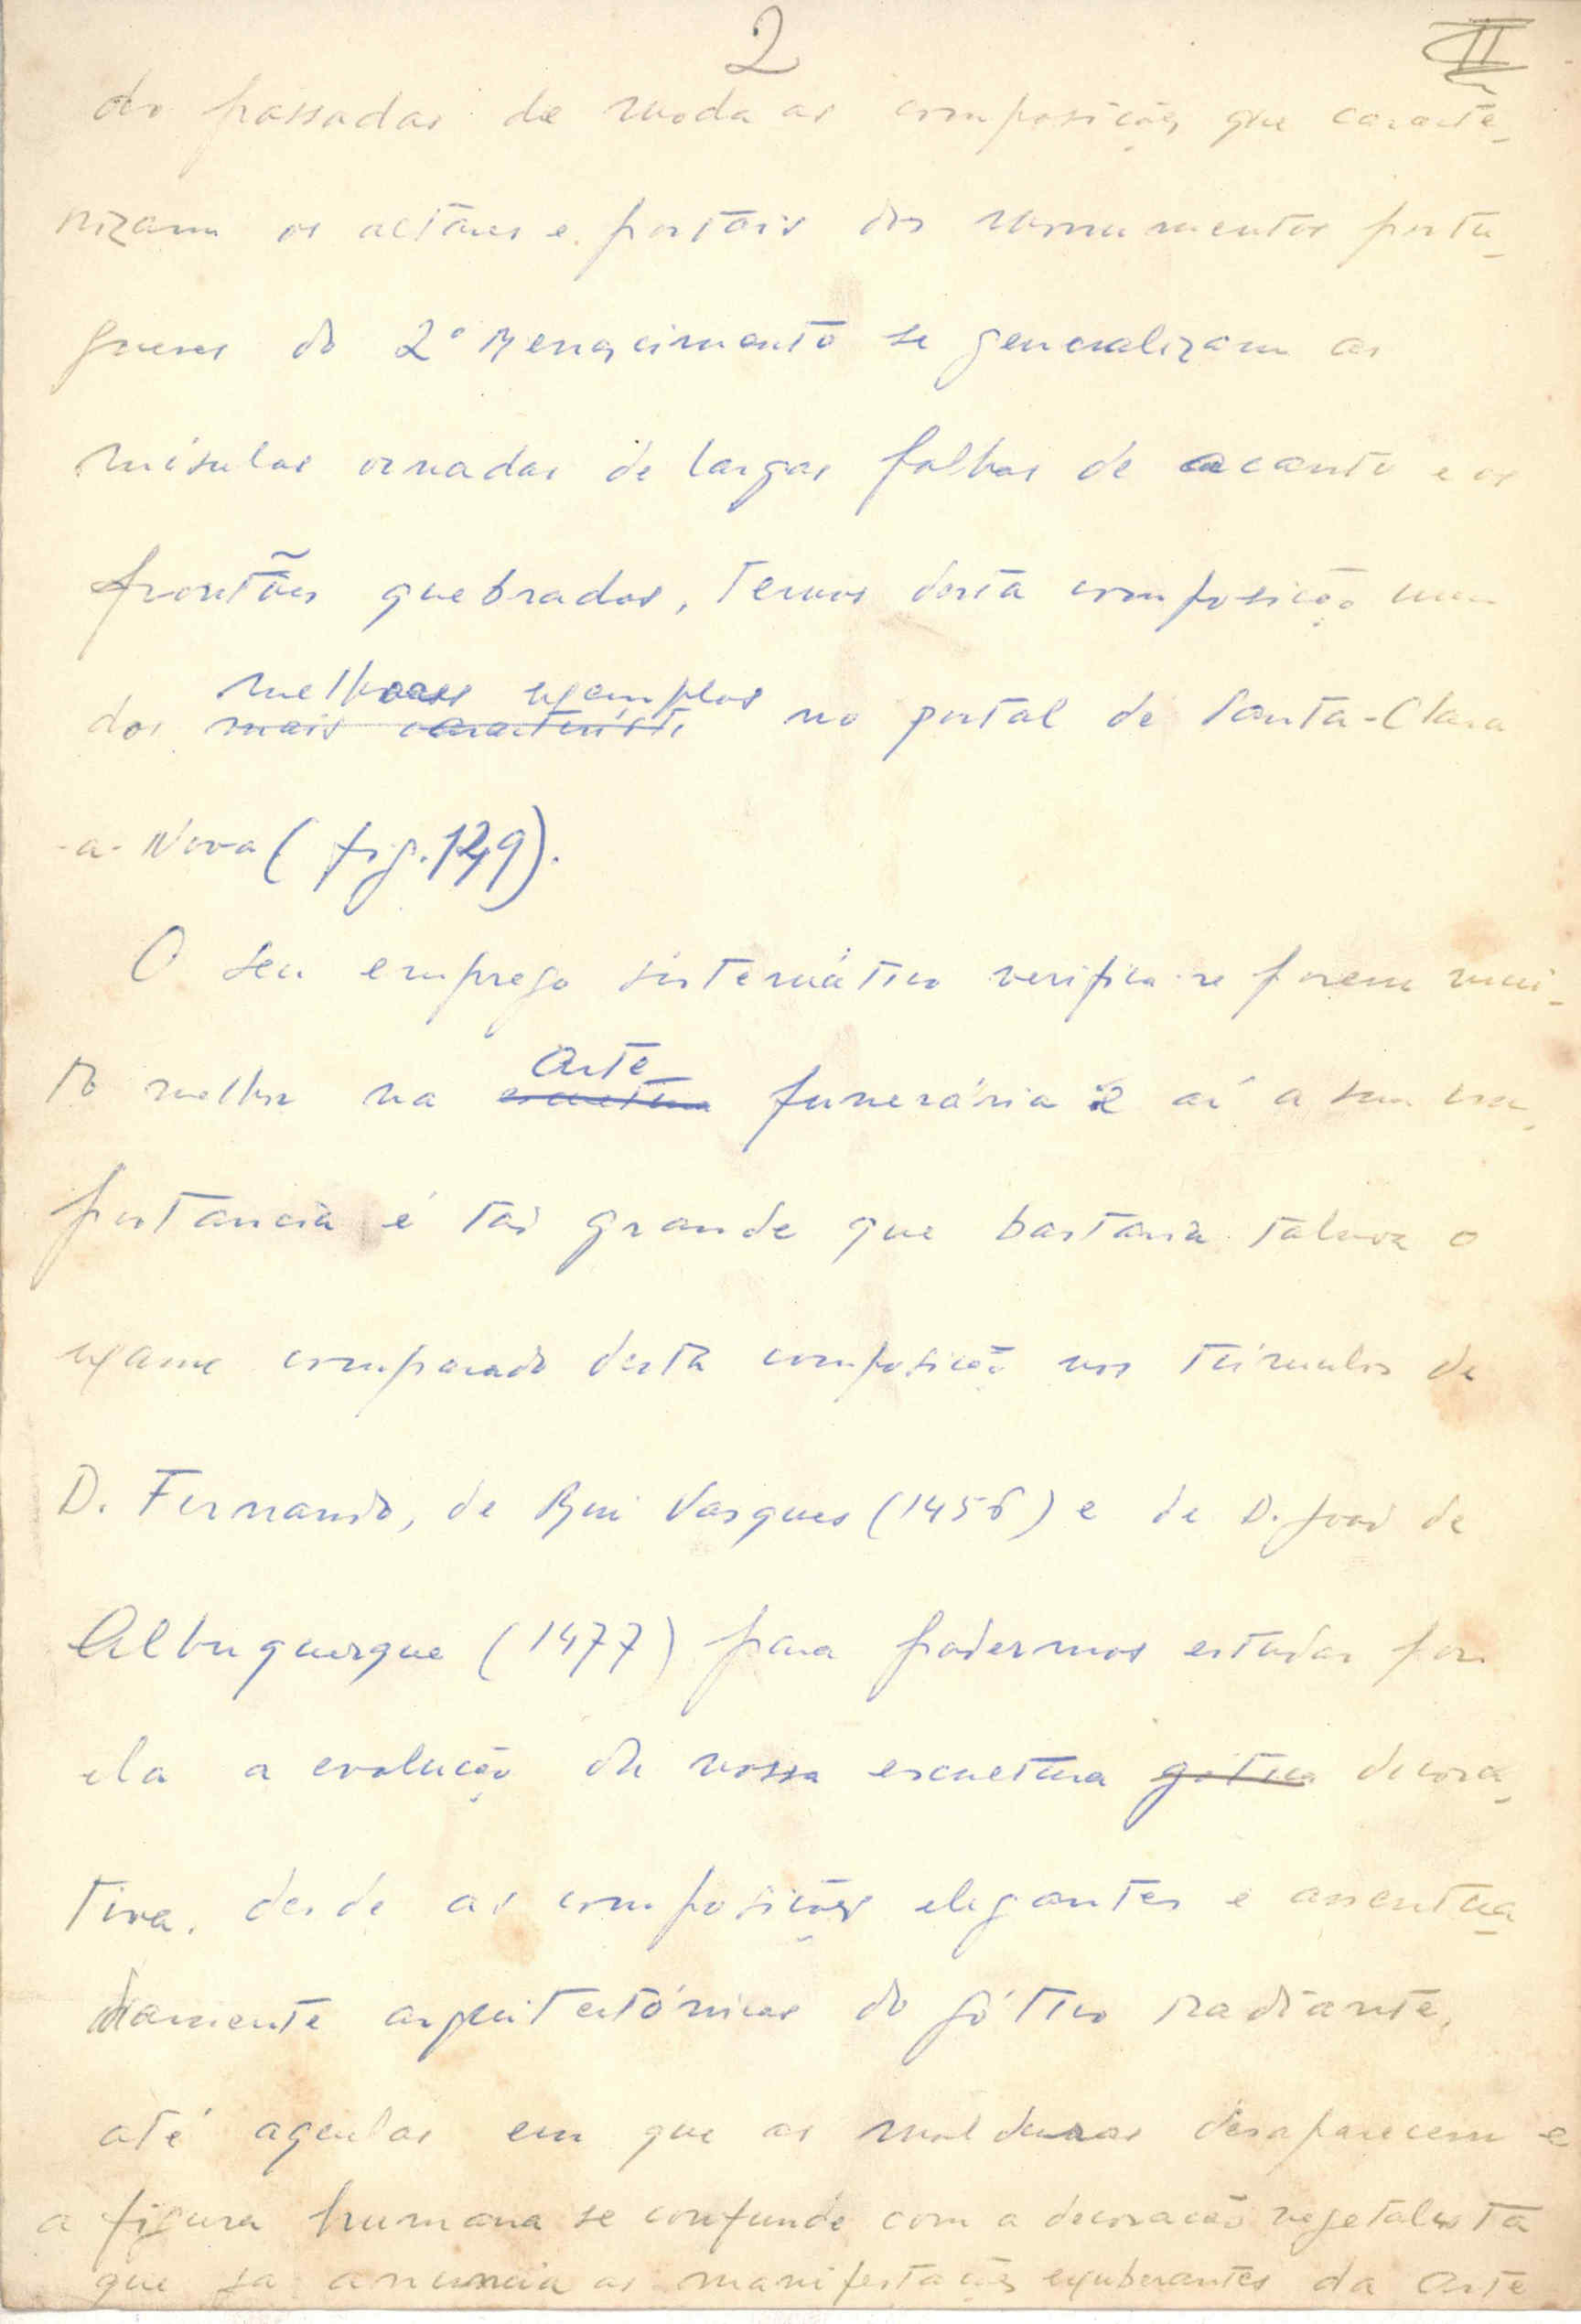 2
II
do passadas de moda as composições que caracte-
rizam os altares e portais dos monumentos portu-
gueses do 2º Renascimento se generalizam as
mísulas ornadas de largas folhas de acanto e os
frontões quebrados, temos desta composição um
melhores exemplos
dos mais caracteristi no portal de Santa-Clara
-a-Nova (fig. 149).
O seu emprego sistemático verifica-se porem mui-
to melhor na arte escultura funerária e aí a sua im-
portancia é tão grande que bastaria talvez o
exame comparado desta composição nos túmulos de
D. Fernando, de Rui Vasques (1456) e de D. João de
Albuquerque (1477) para podermos estudar por
ela a evolução da nossa escultura gótica decora-
tiva, desde as composições elegantes e assentua-
damente arquitectónicas do gótico radiante,
até aquelas em que as molduras desaparecem e
a figura humana se confunde com a decoração vegetalista
que ja anuncia as manifestações exuberantes da arte